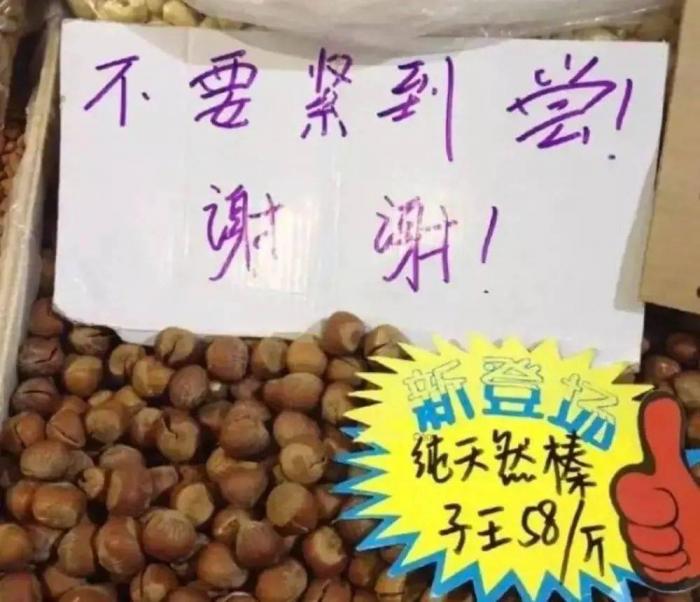 不要紧到尝！
谢谢！
新登场
纯天然榛
子王58/斤